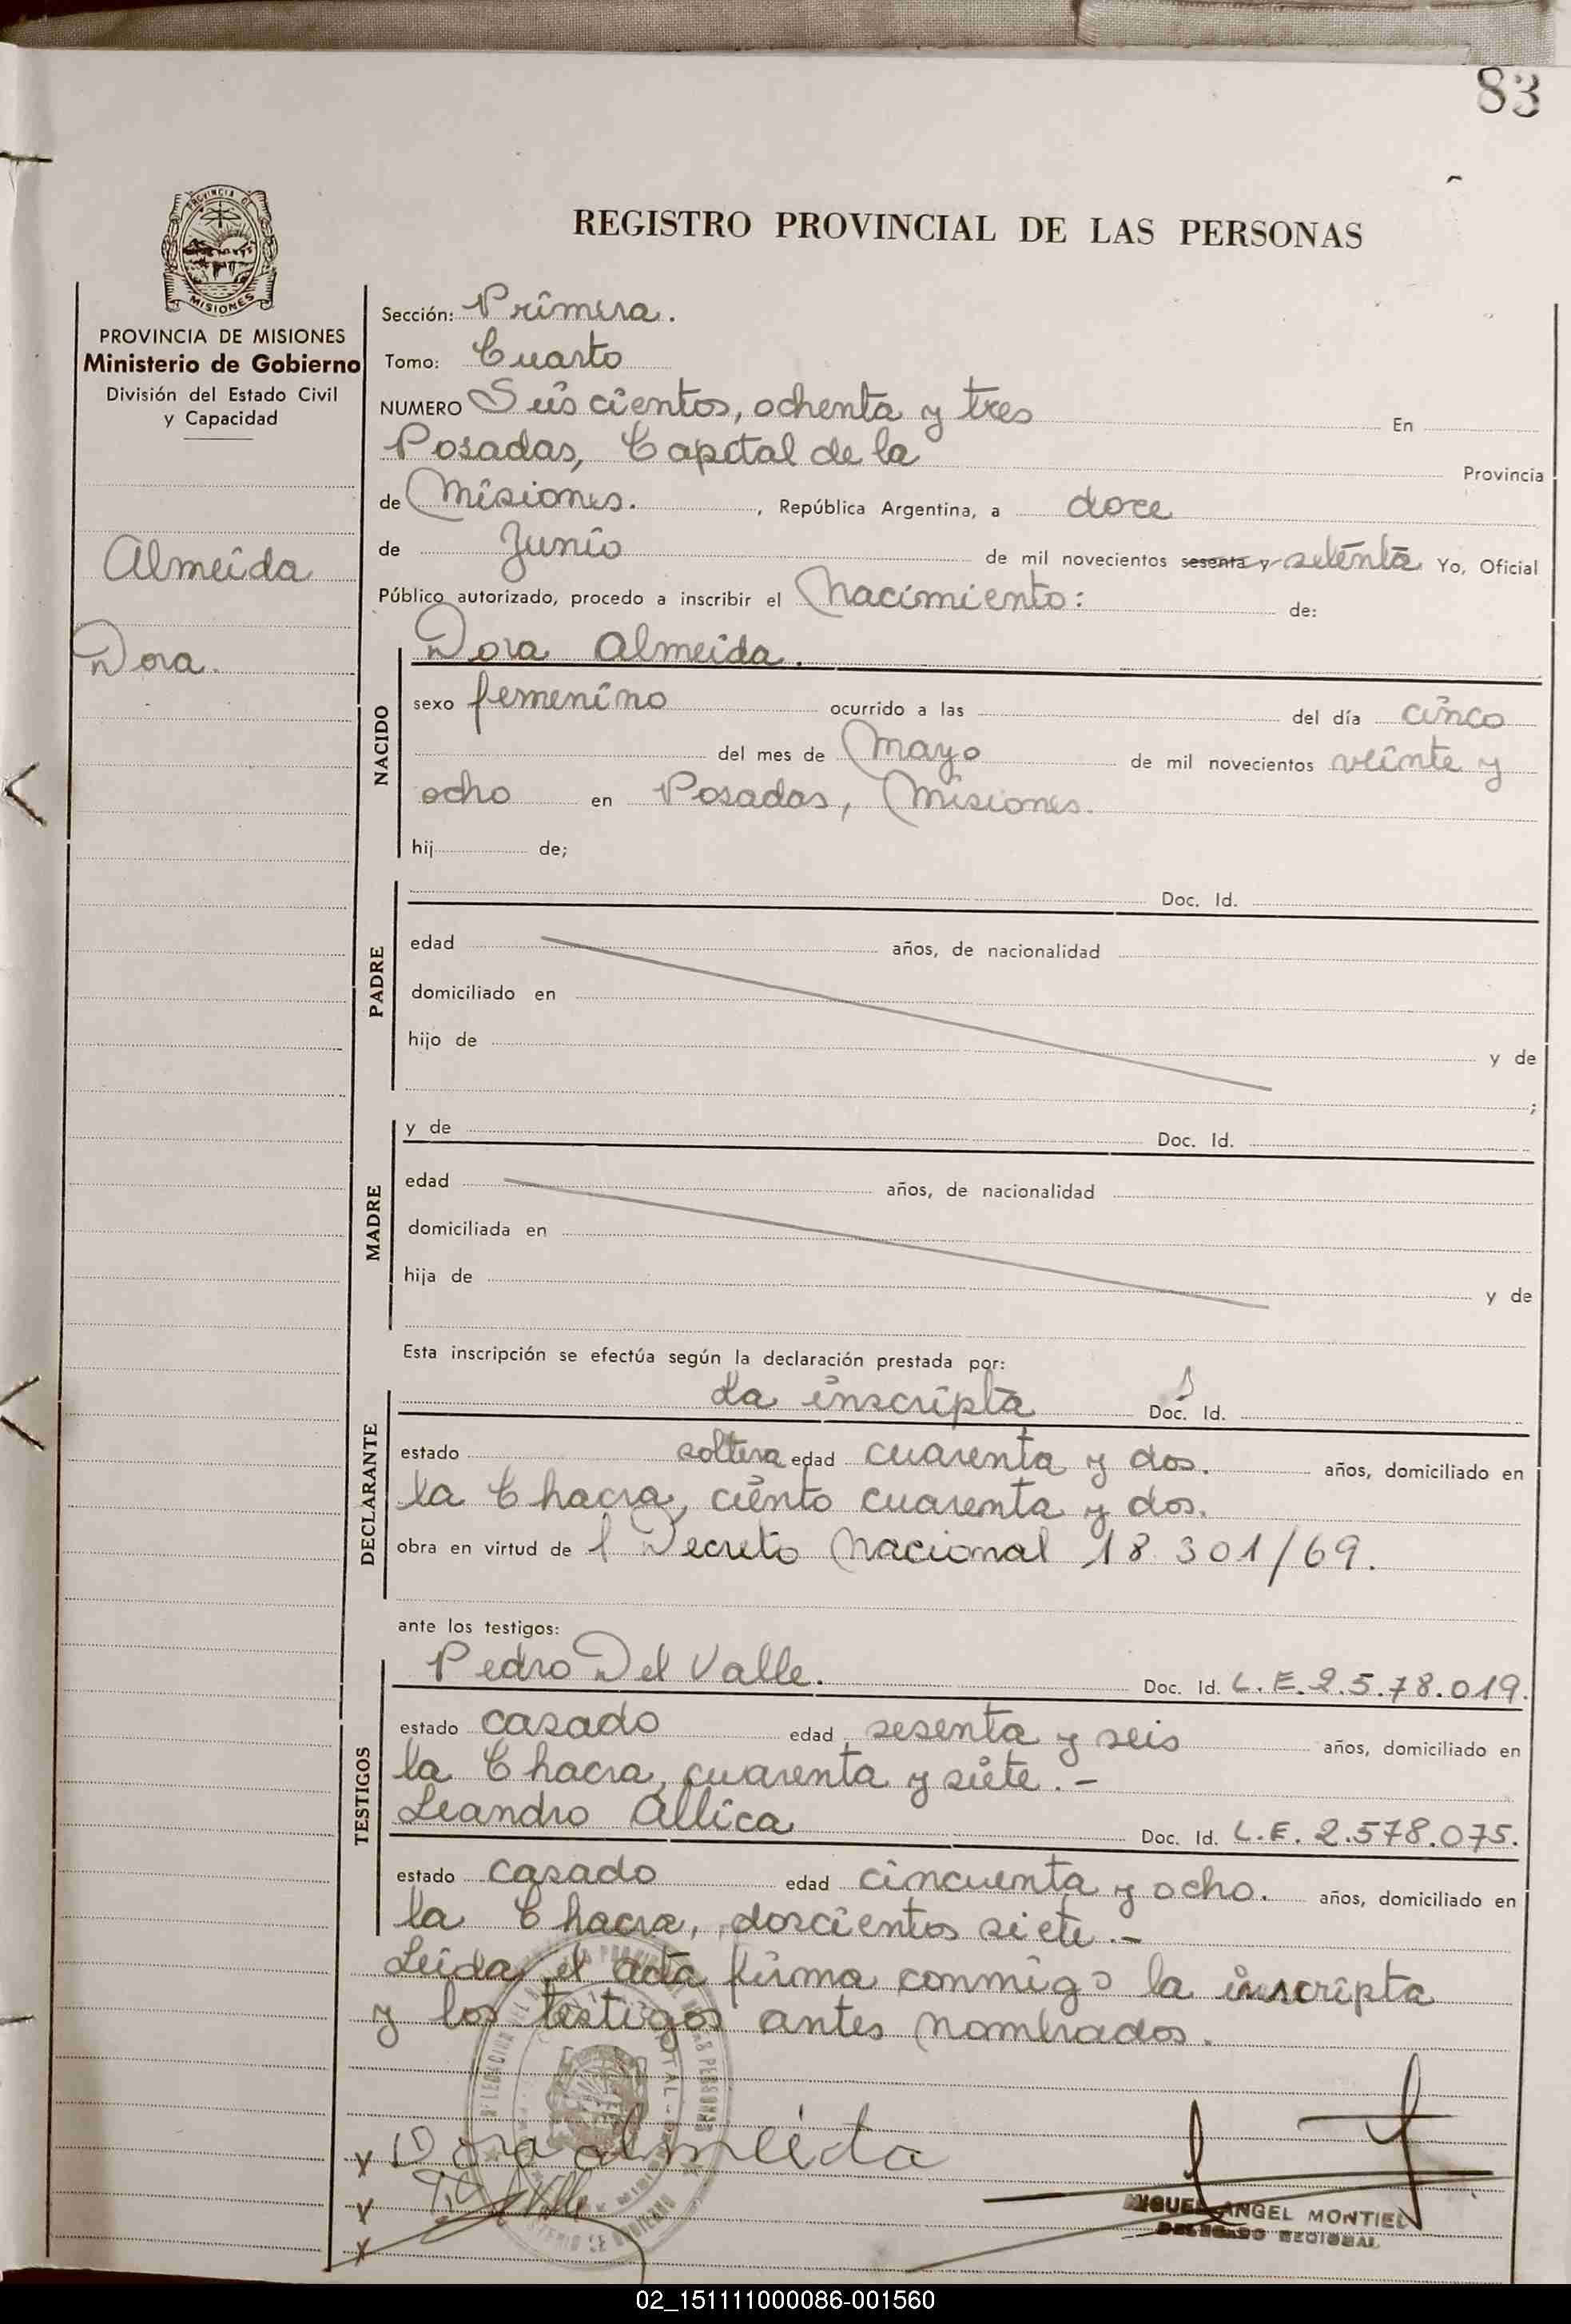 83
PROVINCIA DE
MISIONES
REGISTRO PROVINCIAL DE LAS PERSONAS
PROVINCIA DE MISIONES
Ministerio de Gobierno
División del Estado Civil
y Capacidad
Almeida
Dora.
Sección: Primera.
Tomo: Cuarto
NUMERO Seiscientos, ochenta y tres En
Posadas, Capital de la Provincia
de Misiones. , República Argentina, a doce
de Junio de mil novecientos sesenta y setenta Yo, Oficial
Público autorizado, procedo a inscribir el Nacimiento: de:
NACIDO
Dora Almeida.
sexo femenino ocurrido a las del día cinco
del mes de Mayo de mil novecientos veinte y
ocho en Posadas, Misiones.
hij de;
PADRE
Doc. Id.
edad años, de nacionalidad
domiciliado en
hijo de y de
;
MADRE
y de Doc. Id.
edad años, de nacionalidad
domiciliada en
hija de y de
Esta inscripción se efectúa según la declaración prestada por:
DECLARANTE
La inscripta Doc. Id.
estado soltera edad cuarenta y dos. años, domiciliado en
la Chacra, ciento cuarenta y dos.
obra en virtud de l Decreto Nacional 18.301/69.
ante los testigos:
TESTIGOS
Pedro Del Valle. Doc. Id. L.E.2.5.78.019.
estado casado edad sesenta y seis años, domiciliado en
la Chacra, cuarenta y siete.-
Leandro Allica Doc. Id. L.E. 2.578.075.
estado casado edad cincuenta y ocho. años, domiciliado en
la Chacra, doscientos siete.-
Leida el acta firma conmigo la inscripta
y los testigos antes nombrados.
x Dora almeida
x
x
MIGUEL ANGEL MONTIEL
DELEGADO REGIONAL
02_151111000086-001560